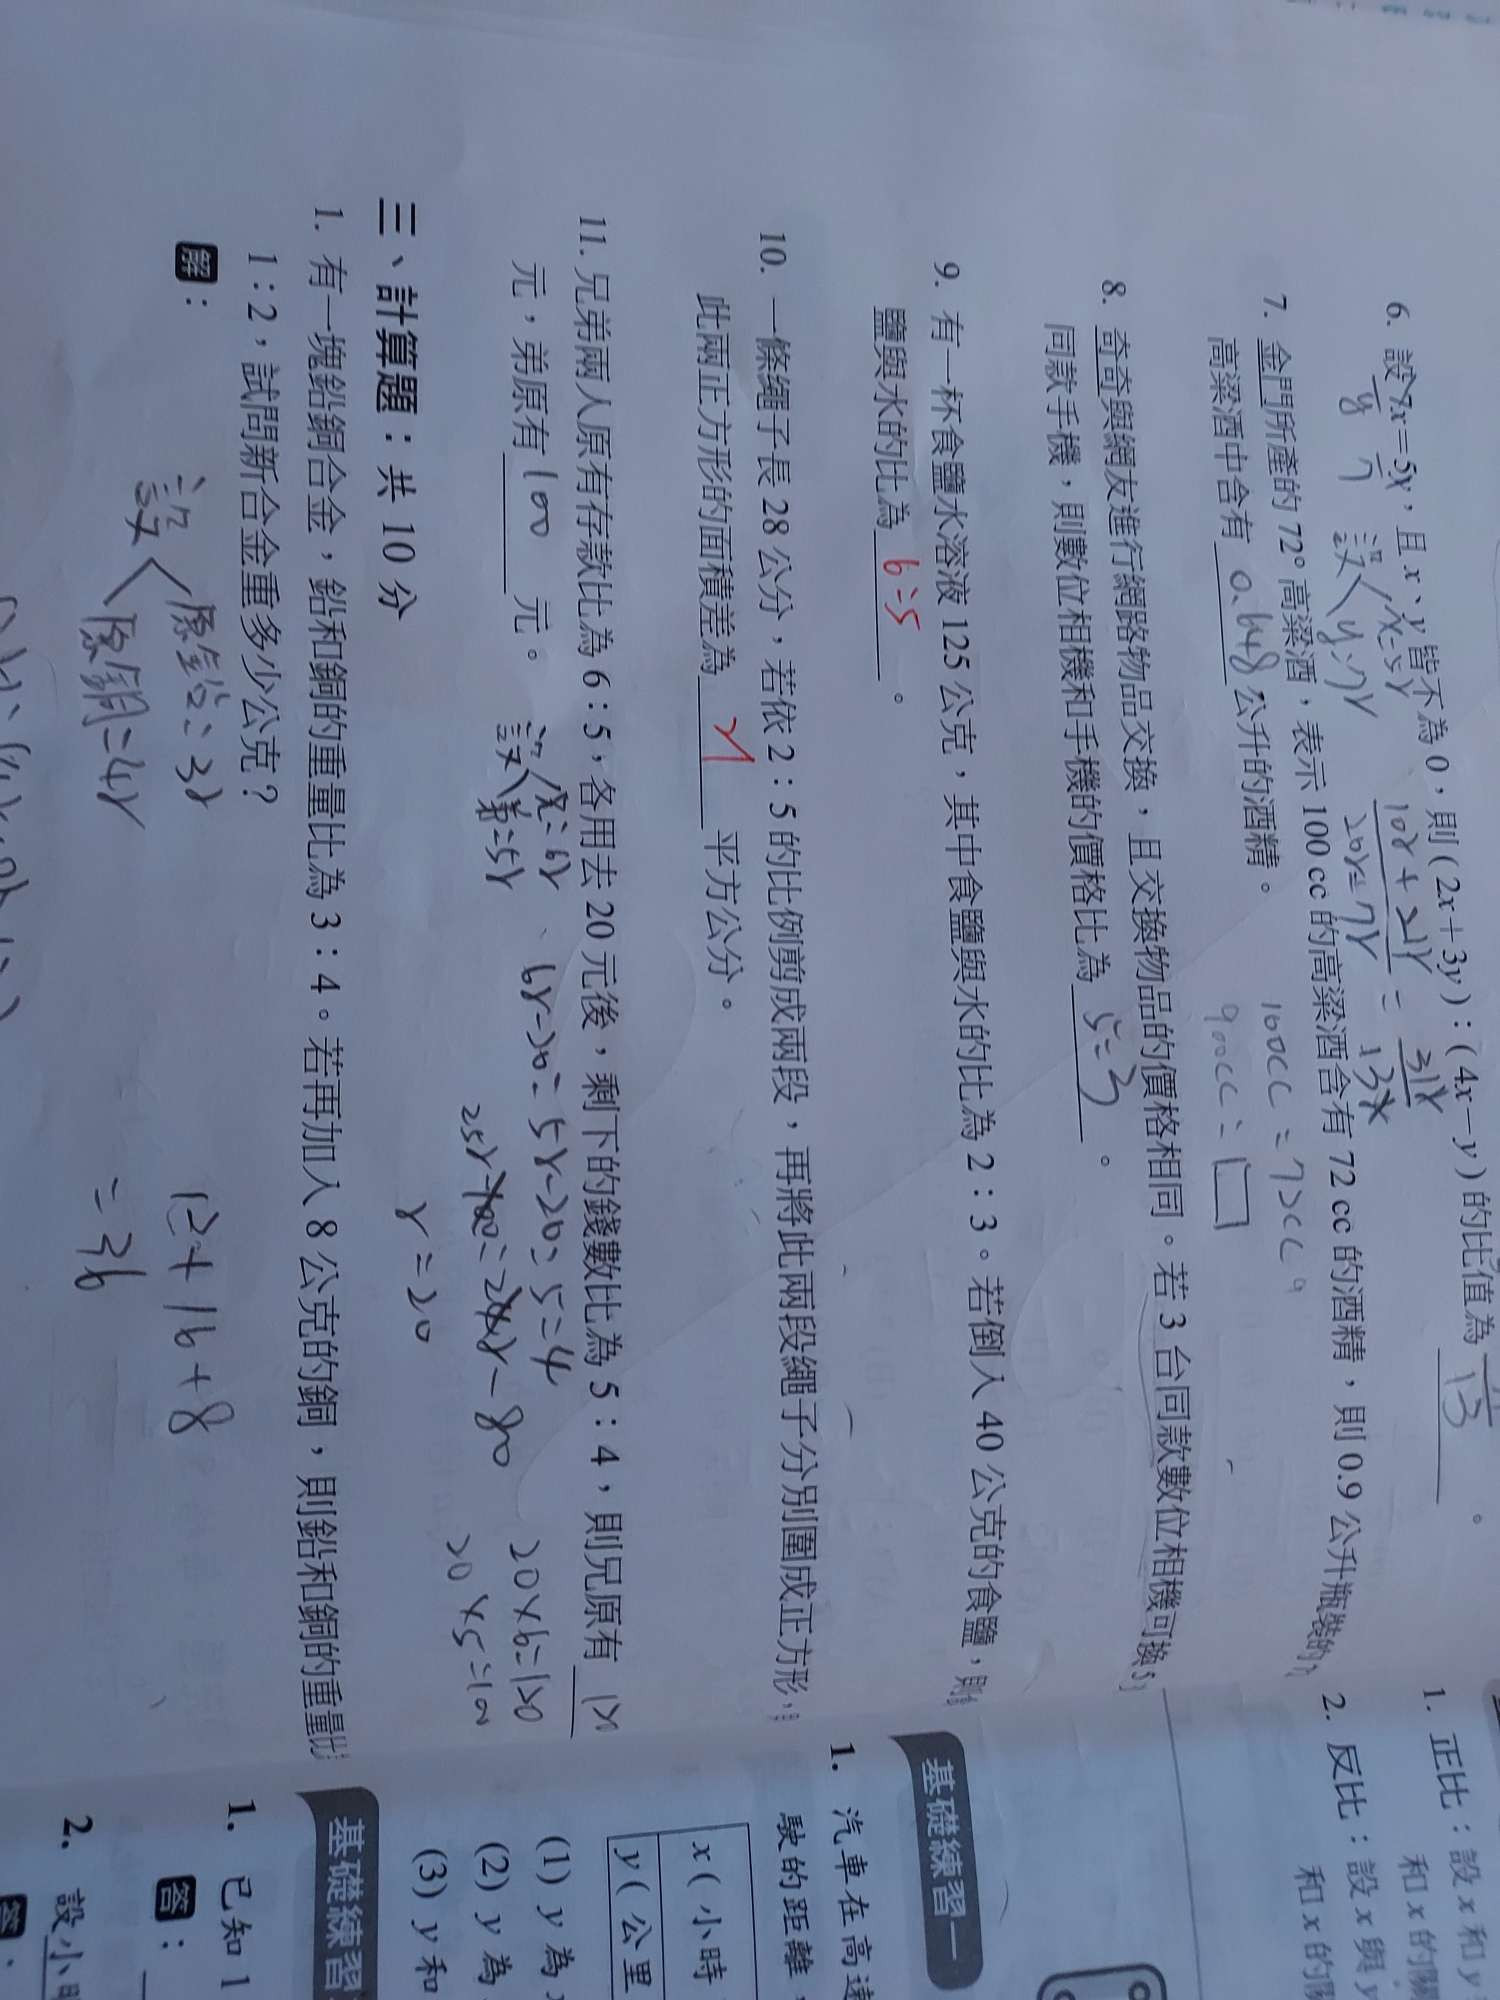 6. 設 7x=5y，且 x、y 皆不為 0，則 (2x+3y)：(4x−y) 的比值為
13
。
設 x=5r
y=7r
10r+21r
20r-7r
=
31r
13r
7. 金門所產的 72° 高粱酒，表示 100 cc 的高粱酒含有 72 cc 的酒精，則 0.9 公升瓶裝的
高粱酒中含有 0.648 公升的酒精。
100cc=72cc
900cc=□
8. 奇奇與網友進行網路物品交換，且交換物品的價格相同。若 3 台同款數位相機可換 5
同款手機，則數位相機和手機的價格比為 5:3 。
9. 有一杯食鹽水溶液 125 公克，其中食鹽與水的比為 2：3。若倒入 40 公克的食鹽，則
鹽與水的比為 6:5 。
10. 一條繩子長 28 公分，若依 2：5 的比例剪成兩段，再將此兩段繩子分別圍成正方形，
此兩正方形的面積差為 21 平方公分。
11. 兄弟兩人原有存款比為 6：5，各用去 20 元後，剩下的錢數比為 5：4，則兄原有
元，弟原有 100 元。
設 兄=6r
弟=5r
6r-20:5r-20=5:4
25r-100=24r-80
r=20
20×6=120
20×5=100
三、計算題：共 10 分
1. 有一塊鉛銅合金，鉛和銅的重量比為 3：4。若再加入 8 公克的銅，則鉛和銅的重量比
1：2，試問新合金重多少公克？
解：
設 原鉛=3r
原銅=4r
12+16+8
=36
1. 正比：設 x 和 y
和 x 的關
2. 反比：設 x 與 y
和 x 的關
基礎練習一
1. 汽車在高速
駛的距離
x (小時
y (公里
(1) y 為
(2) y 為
(3) y 和
基礎練習
1. 已知 1
答：
2. 設小明
答：